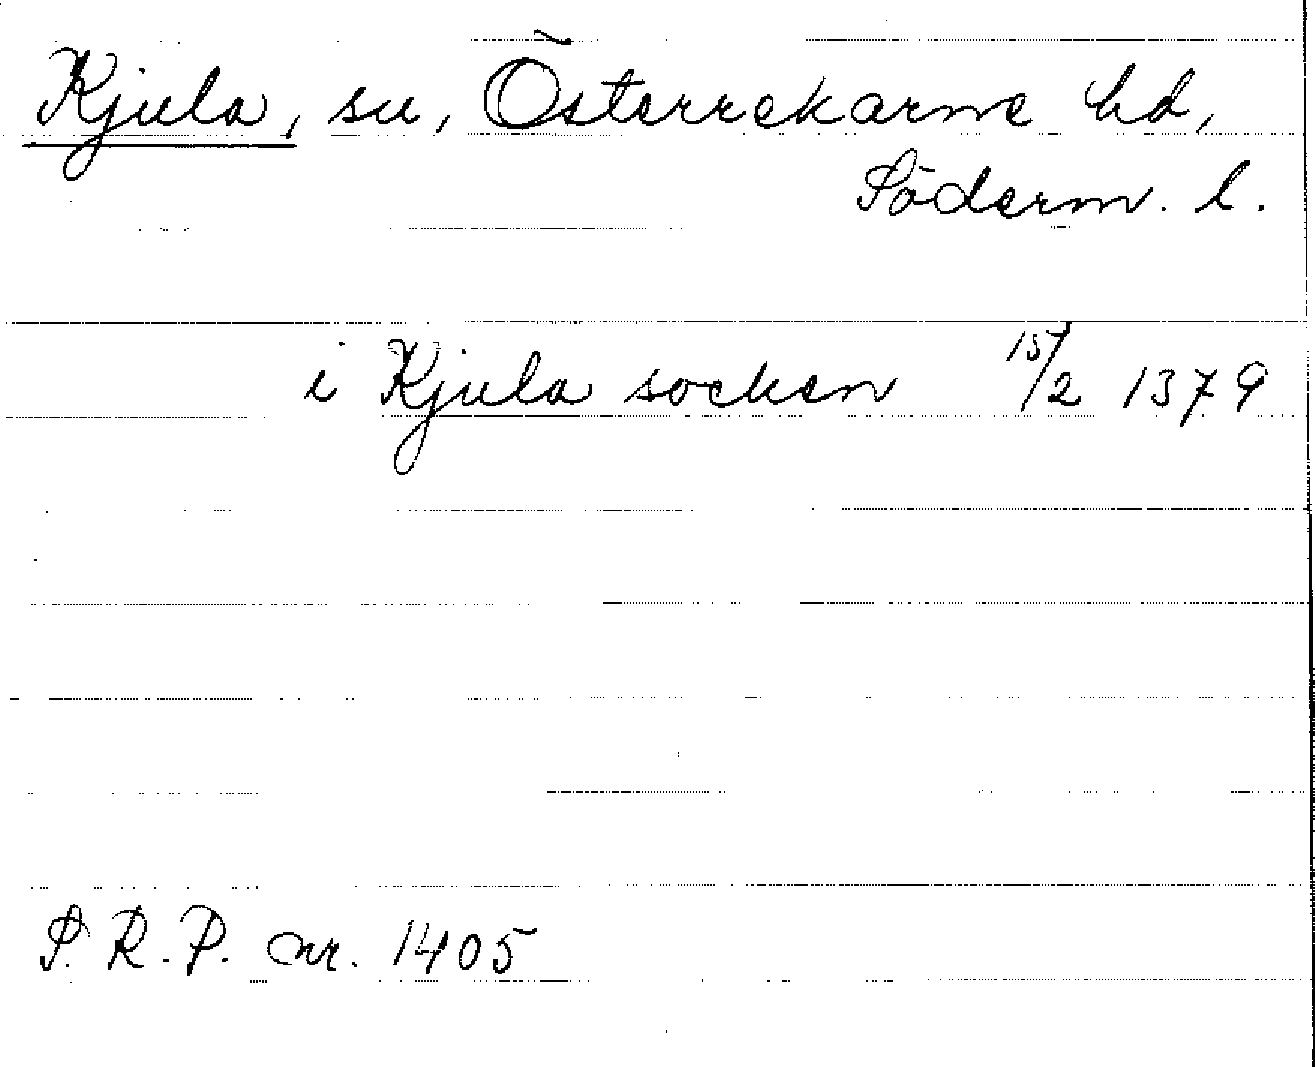 Kjula, sn, Österrekarne hd,
Söderm. l.
i Kjula socken 15/2 1379
S.R.P. nr. 1405